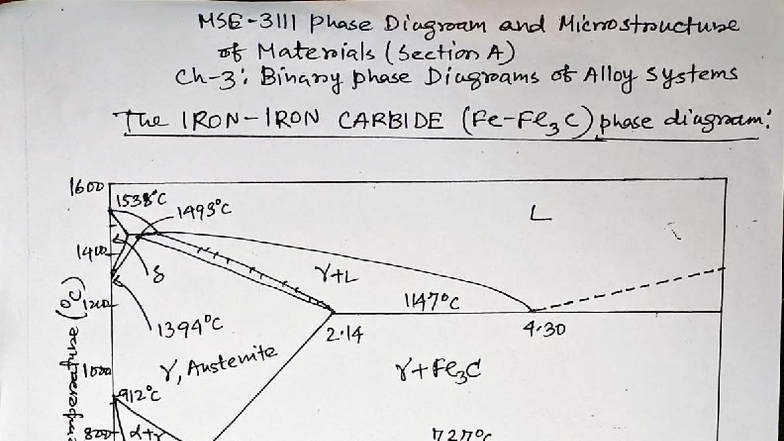 MSE-3111 Phase Diagram and Microstructure
of Materials (Section A)
Ch-3: Binary phase Diagrams of Alloy Systems
The IRON-IRON CARBIDE (Fe-Fe3C) phase diagram:
1600
1538°C
1493°C
L
1400
δ
γ+L
1147°C
1200
1394°C
2.14
4.30
γ, Austenite
1000
γ+Fe3C
912°C
800
α+γ
727°C
Temperature (°C)